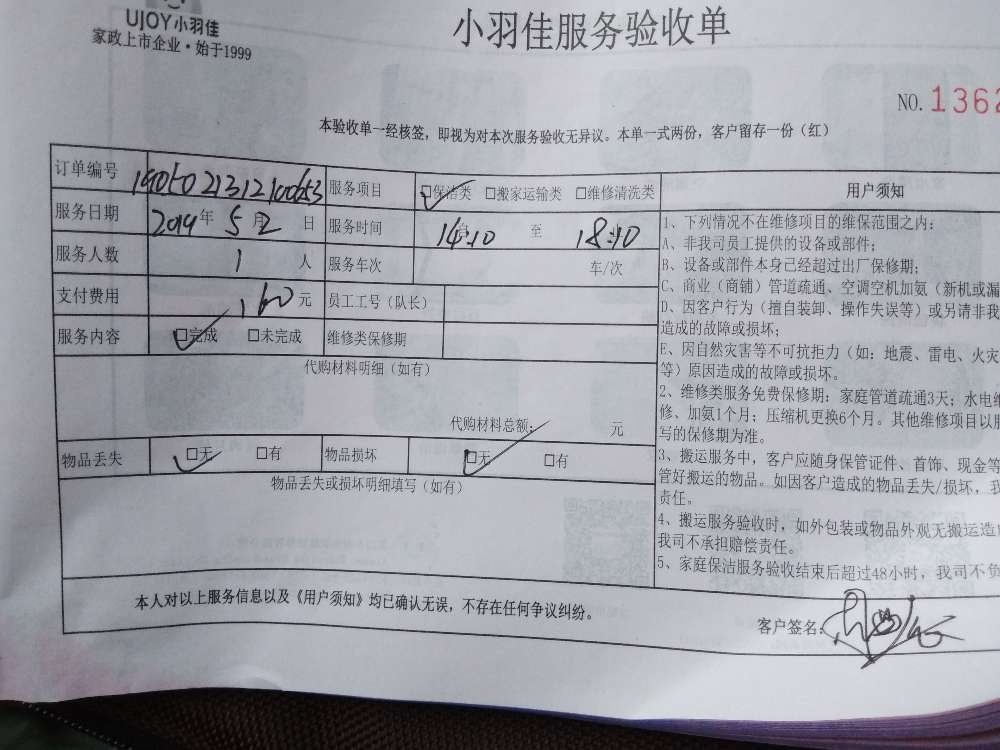 UJOY小羽佳
家政上市企业·始于1999
小羽佳服务验收单
NO.1362
本验收单一经核签，即视为对本次服务验收无异议。本单一式两份，客户留存一份（红）
订单编号 服务项目 □保洁类 □搬家运输类 □维修清洗类 用户须知
服务日期 2019年 5月2日 服务时间 14:10 至 18:10
服务人数 1 人 服务车次 车/次
支付费用 160元 员工工号（队长）
服务内容 □完成 □未完成 维修类保修期
代购材料明细（如有）
代购材料总额： 元
物品丢失 □无 □有 物品损坏 □无 □有
物品丢失或损坏明细填写（如有）
1、下列情况不在维修项目的维保范围之内：
A、非我司员工提供的设备或部件；
B、设备或部件本身已经超过出厂保修期；
C、商业（商铺）管道疏通、空调空机加氨（新机或漏
D、因客户行为（擅自装卸、操作失误等）或另请非我
造成的故障或损坏；
E、因自然灾害等不可抗拒力（如：地震、雷电、火灾
等）原因造成的故障或损坏。
2、维修类服务免费保修期：家庭管道疏通3天；水电维
修、加氨1个月；压缩机更换6个月。其他维修项目以服
写的保修期为准。
3、搬运服务中，客户应随身保管证件、首饰、现金等
管好搬运的物品。如因客户造成的物品丢失/损坏，我
责任。
4、搬运服务验收时，如外包装或物品外观无搬运造成
我司不承担赔偿责任。
5、家庭保洁服务验收结束后超过48小时，我司不负
本人对以上服务信息以及《用户须知》均已确认无误，不存在任何争议纠纷。
客户签名：